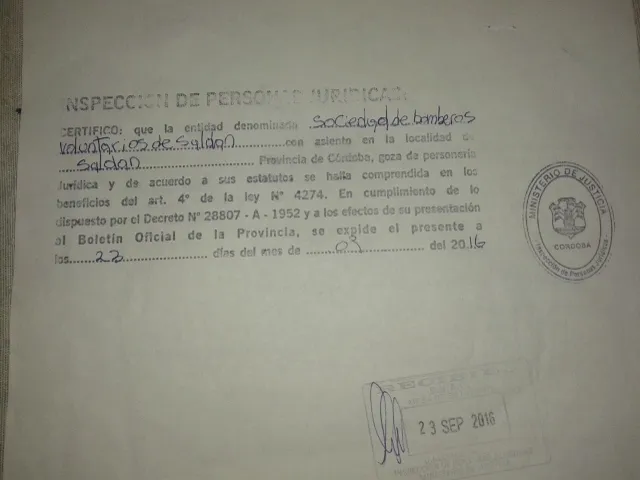 INSPECCION DE PERSONAS JURIDICAS:
CERTIFICO: que la entidad denominada Sociedad de bomberos
Voluntarios de Saldan con asiento en la localidad de
Saldan Provincia de Córdoba, goza de personería
Jurídica y de acuerdo a sus estatutos se halla comprendida en los
beneficios del art. 4° de la ley N° 4274. En cumplimiento de lo
dispuesto por el Decreto N° 28807 - A - 1952 y a los efectos de su presentación
al Boletín Oficial de la Provincia, se expide el presente a
los 22 días del mes de 09 del 2016
MINISTERIO DE JUSTICIA
CORDOBA
Inspección de Personas Jurídicas
23 SEP 2016